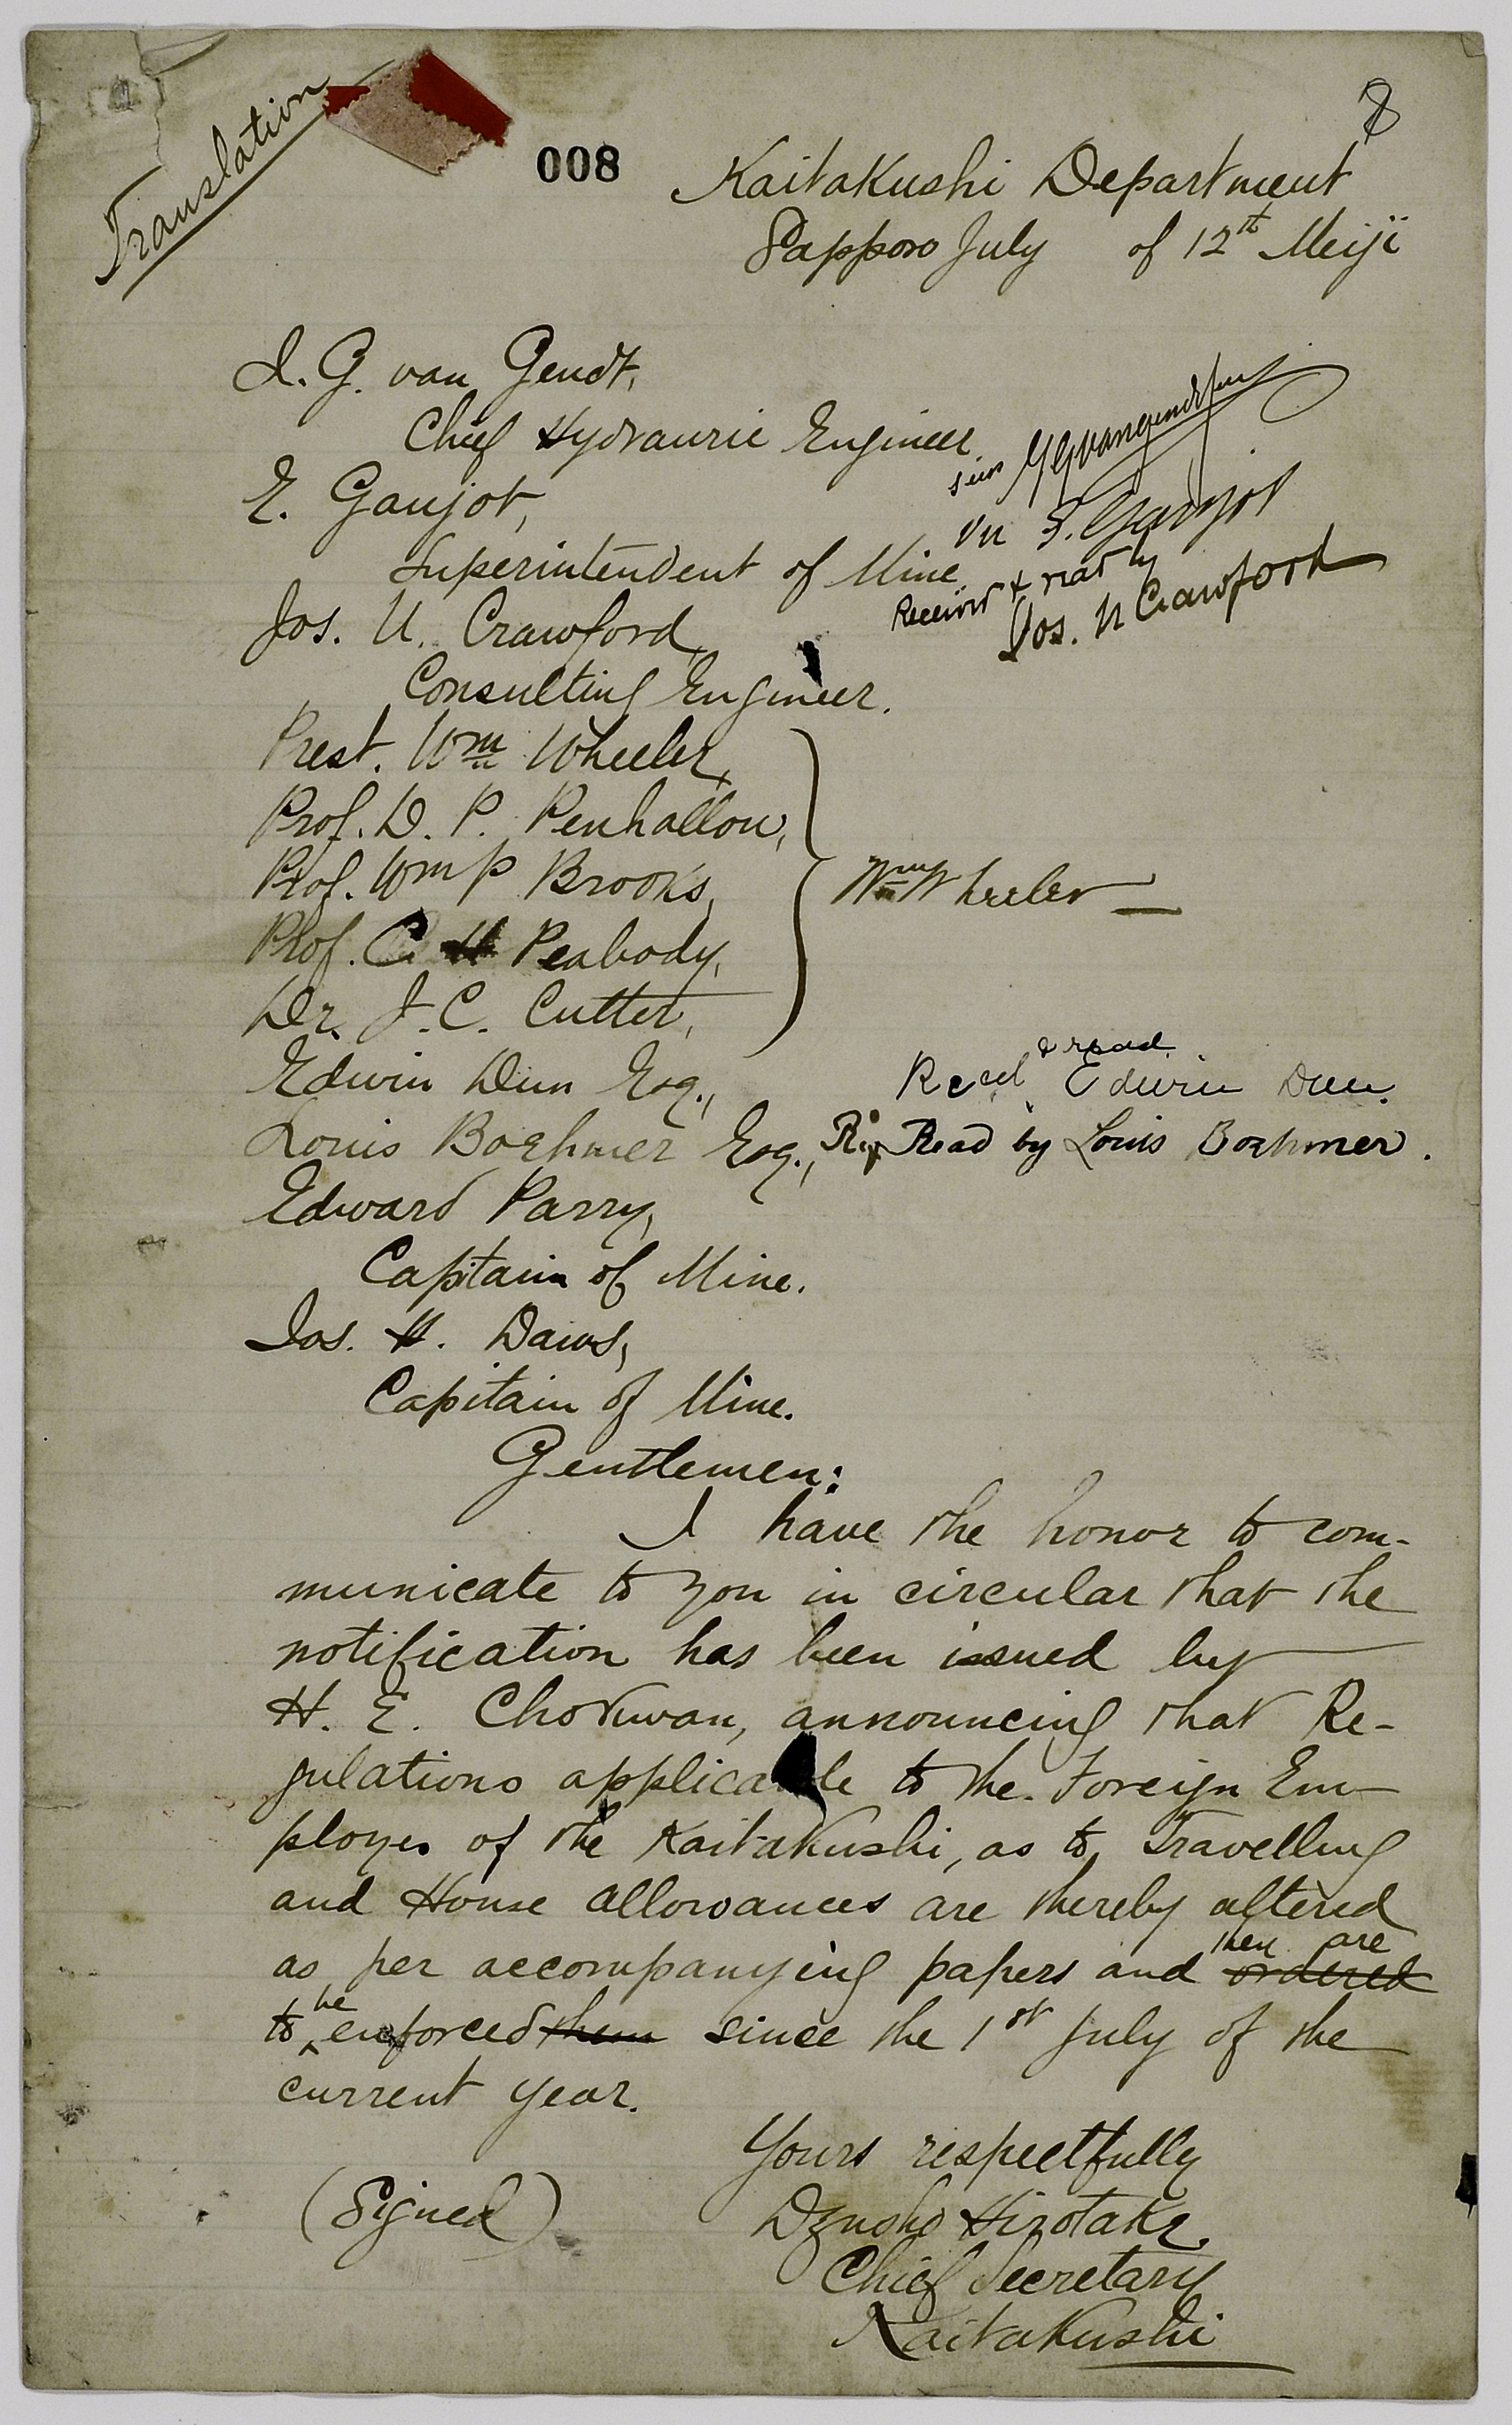 Translation
008
8
Kaitakushi Department
Sapporo July of 12th Meiji
I. G. van Gendt,
Chief Hydrauric Engineer
E. Gaujot,
Superintendent of Mine.
Jos. U. Crawford,
Consulting Engineer.
vu E. Gaujot
Received & read by
Jos. U Crawford
Prest. Wm Wheeler,
Prof. D. P. Penhallow,
Prof. Wm P Brooks,
Prof. C Peabody,
Dr. J. C. Cutter,
Wm Wheeler
Edwin Dun Esq.,
Recd & read Edwin Dun.
Louis Boehmer Esq.,
Read by Louis Boehmer.
Edward Parry,
Captain of Mine.
Jos. H. Daws,
Capitain of Mine.
Gentlemen:
I have the honor to com-
municate to you in circular that the
notification has been issued by
H. E. Chokuwan, announcing that Re-
gulations applicable to the Foreign Em-
ployes of the Kaitakushi, as to Travelling
and House allowances are thereby altered
as per accompanying papers and ordered then are
to be enforced them since the 1st July of the
current year.
Yours respectfully
(Signed)
Dzusho Hirotake
Chief Secretary
Kaitakushi